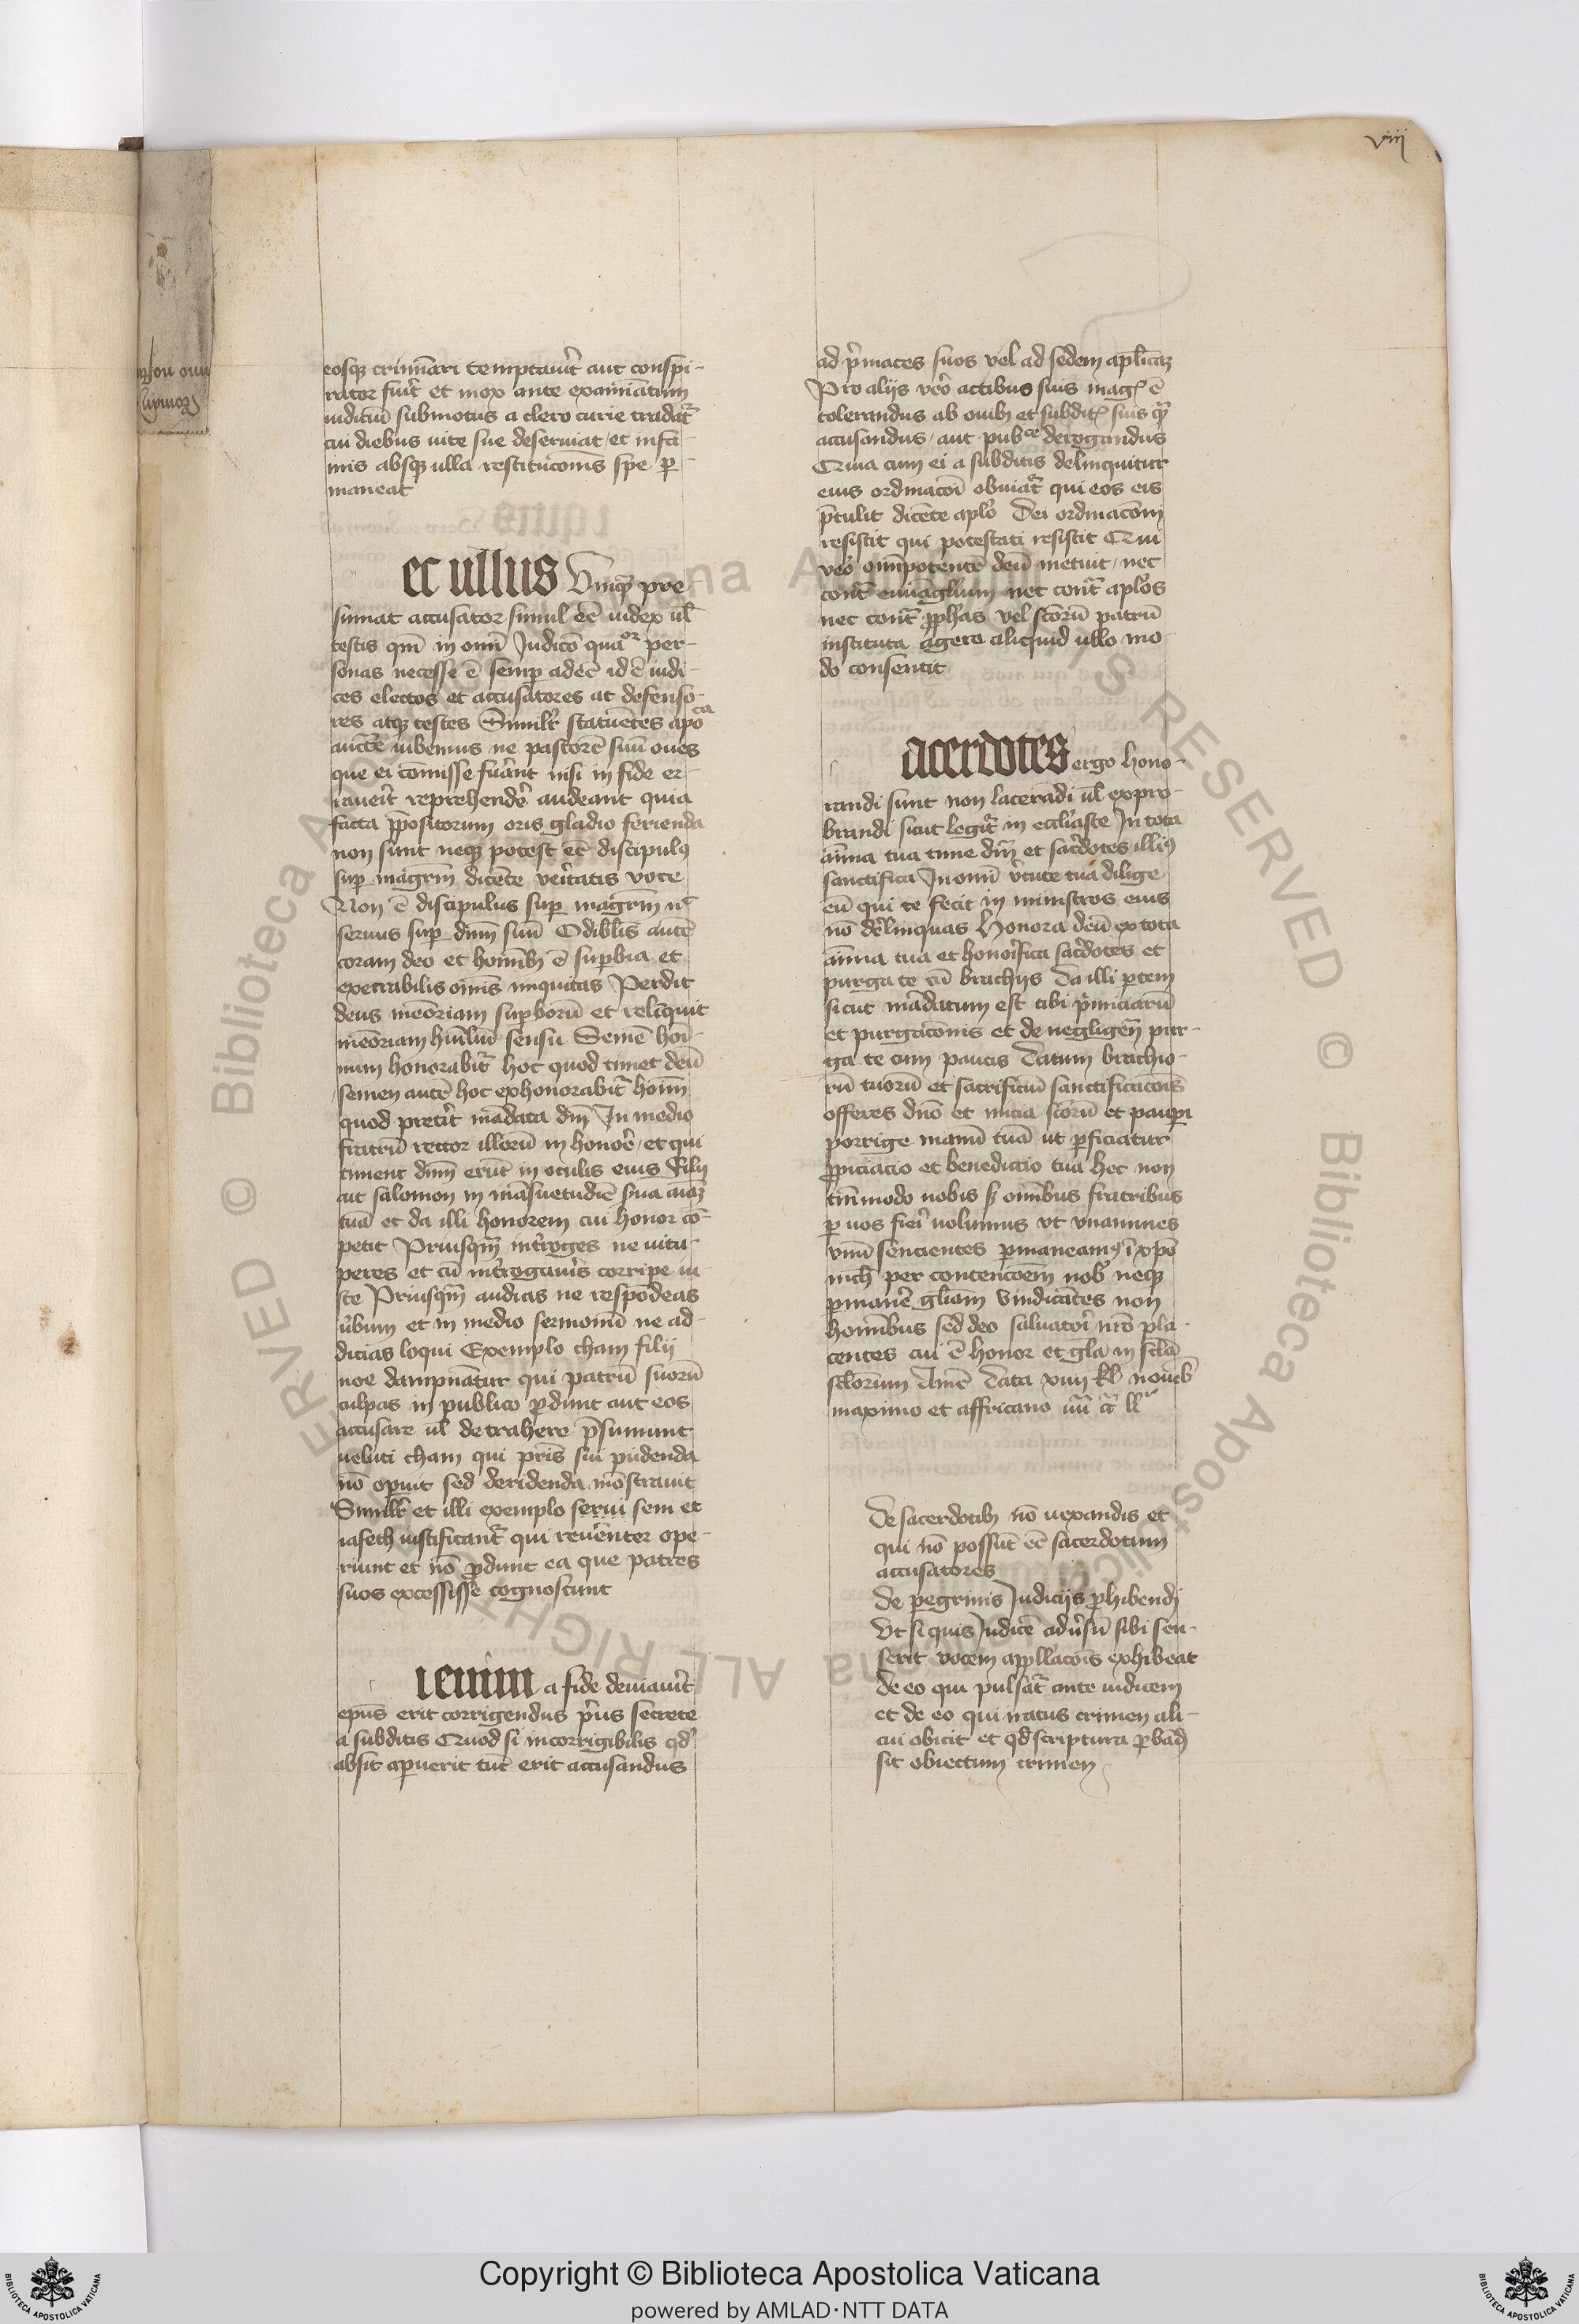 viij
eosqꝫ crimīari temptauit̉ aut conspi-
rator fuit̉ et mox ante examinatum
iudiciū submotus a clero curie tradat᷑
cui diebus uite sue deseruiat / et infa-
mis absqꝫ ulla restitucōnis spe ꝑ-
maneat
ec ullus Vmqꝫ pre
sumat accusator simul eē iudex ul̄
testis qm̄ in omī Judicō quaᵒʳ per-
sonas necesse ē semꝑ adeē id ē iudi-
ces electos et accusatores ac defenso-
res atqꝫ testes Simil̉r statuētes apoᶜᵃ
auctē iubemus ne pastorē suū oues
que ei cōmisse fuer̄nt nisi in fide er-
rauerit̉ reprehender̉ audeant quia
facta p̄positorum oris gladio ferienda
non sunt neqꝫ potest eē discipulꝰ
suꝑ mag̃rm dicēte ueritatis voce
Non ē discipulus suꝑ mag̃rm nᶜ
seruus suꝑ dnm̄ suū Odibil̄is autē
coram deo et homībꝫ ē suꝑbia et
execrabilis omīs iniquitas Perdit
deus meōriam suꝑborū et reliquit
meōriam humiliū sensu Semē hoī-
num honorabit᷑ hoc quod timet deū
semen autē hoc exhonorabit᷑ hoīm
quod pretit̉ mādata dnī In medio
fratrū rector illorū in honorẻ / et qui
timent dnm̄ erūt in oculis eius Filij
ait salomon in māsuetudiē ẜua aīaꝫ
tuā et da illi honorem cui honor cō-
petit Priusqm̄ int̉roges ne uitu-
peres et cū int̉rogaueris corripe iu-
ste Priusqm̄ audias ne respōdeas
u̅bum et in medio sermonū ne ad-
dicias loqui Exemplo cham filij
noe dampnātur qui patrū suorū
culpas in publico ꝓdunt aut eos
accusare ul̄ detrahere p̄sumunt
ueluti cham qui pr̄is sui pudenda
nō opuit sed deridenda mōstrauit
Simil̉r et illi exemplo serui sem et
iafeth iustificant᷑ qui reuer̄nter ope-
riunt et nō ꝓdunt ea que patres
suos excessisse cognoscunt
ienim a fide deuiauit̉
ep̄us erit corrigendus p̉us secrete
a subditis Quod si incorrigibilis qd̉
absit aꝑuerit tūc erit accusandus
ad p̉mates suos vel ad sedem apl̄icaꝫ
Pro alijs verỏ actibus suis magꝭ ē
tolerandus ab ouibꝫ et subditꝭ suis qm̄
accusandus / aut pubᶜᵉ derogandus
Quia cum ei a subditis delinquitur
eius ordinacōi obuiat᷑ qui eos eis
p̄tulit dicēte apl̄o Dei ordinacōm
resistit qui potestati resistit Qui
verỏ omīpotentē deū metuit / nec
contr̄ euuāgl̄ium nec contr̄ apl̄os
nec contr̄ ꝓph̄as vel sc̄orū patrū
instituta agere aliquid ullo mo
do consentit
acerdotes ergo hono-
randi sunt non lacerādi ul̄ expro-
brandi sicut legit᷑ in eccl̄iaste In tota
aīma tua time dnm̄ et sac̉dotes illiꝰ
sanctifica In omī v̉tute tua dilige
eū qui te fecit in ministros eius
nō der̉linquas Honora deū ex tota
aīma tua et honorifica sac̉dotes et
purga te cū brachijs Da illi ꝑtem
sicut mādatum est tibi p̉miciarū
et purgacōnis et de negligēn̄ pur-
ga te cum paucis Datum brachio-
rū tuorū et sacrificiū sanctificacōis
offeres dn̄o et inicia sc̄orū et pauꝑi
porrige manū tuā ut ꝑficiatur
ꝓpiciacio et benedictio tua Hec non
tm̄modo nobis sꝫ omībus fratribus
ꝑ uos fierỉ uolumus vt vnanimes
vnū sencientes ꝑmaneamꝰ ī xp̄o
nich̄ per contencōem nob̉ neqꝫ
ꝑmaner̉ gl̄iam vindicātes non
homībus sed deo saluatorỉ nr̄o pla-
centes cui ē honor et gl̄a in sc̄la
sc̄lorum Amē Data xiiij kl̄ nouēb̉
maximo et affricano uū c̄r ll̄
De sacerdotibꝫ nō uexandis et
qui nō possūt eē sacerdotum
accusatores
De peregrinis Judicijs ꝓhibendj
Vt si quis Judicē adu̅sū sibi sen-
serit vocem appll̄acōis exhibeat
de eo qui pulsat᷑ ante iudicem
et de eo qui iratus crimen ali-
cui obicit et qd̉ scriptura ꝓband̉
sit obiectum crimen
Copyright © Biblioteca Apostolica Vaticana
powered by AMLAD·NTT DATA